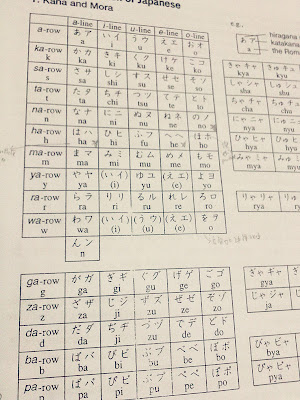 of Japanese
1. Kana and Mora
a-line i-line u-line e-line o-line
a-row あ ア い イ う ウ え エ お オ
a i u e o
ka-row か カ き キ く ク け ケ こ コ
k ka ki ku ke ko
sa-row さ サ し シ す ス せ セ そ ソ
s sa shi su se so
ta-row た タ ち チ つ ツ て テ と ト
t ta chi tsu te to
na-row な ナ に ニ ぬ ヌ ね ネ の ノ
n na ni nu ne no
ha-row は ハ ひ ヒ ふ フ へ ヘ ほ ホ
h ha hi fu he ho
ma-row ま マ み ミ む ム め メ も モ
m ma mi mu me mo
ya-row や ヤ (い イ) ゆ ユ (え エ) よ ヨ
y ya (i) yu (e) yo
ra-row ら ラ り リ る ル れ レ ろ ロ
r ra ri ru re ro
wa-row わ ワ (い イ) (う ウ) (え エ) を ヲ
w wa (i) (u) (e) o
ん ン
n
ga-row が ガ ぎ ギ ぐ グ げ ゲ ご ゴ
g ga gi gu ge go
za-row ざ ザ じ ジ ず ズ ぜ ゼ ぞ ゾ
z za ji zu ze zo
da-row だ ダ ぢ ヂ づ ヅ で デ ど ド
d da ji zu de do
ba-row ば バ び ビ ぶ ブ べ ベ ぼ ボ
b ba bi bu be bo
pa-row ぱ パ ぴ ピ ぷ プ ぺ ペ ぽ ポ
p pa pi pu pe po
e.g.
あ ア
a
hiragana
katakana
the Rom
きゃ キャ きゅ キュ
kya
しゃ シャ しゅ シュ
sha
ちゃ チャ ちゅ チュ
cha
にゃ ニャ にゅ ニュ
nya
ひゃ ヒャ ひゅ
hya
みゃ ミャ みゅ
mya
りゃ リャ りゅ
rya
ぎゃ ギャ
gya
じゃ ジャ
ja
びゃ ビャ
bya
ぴゃ ピャ